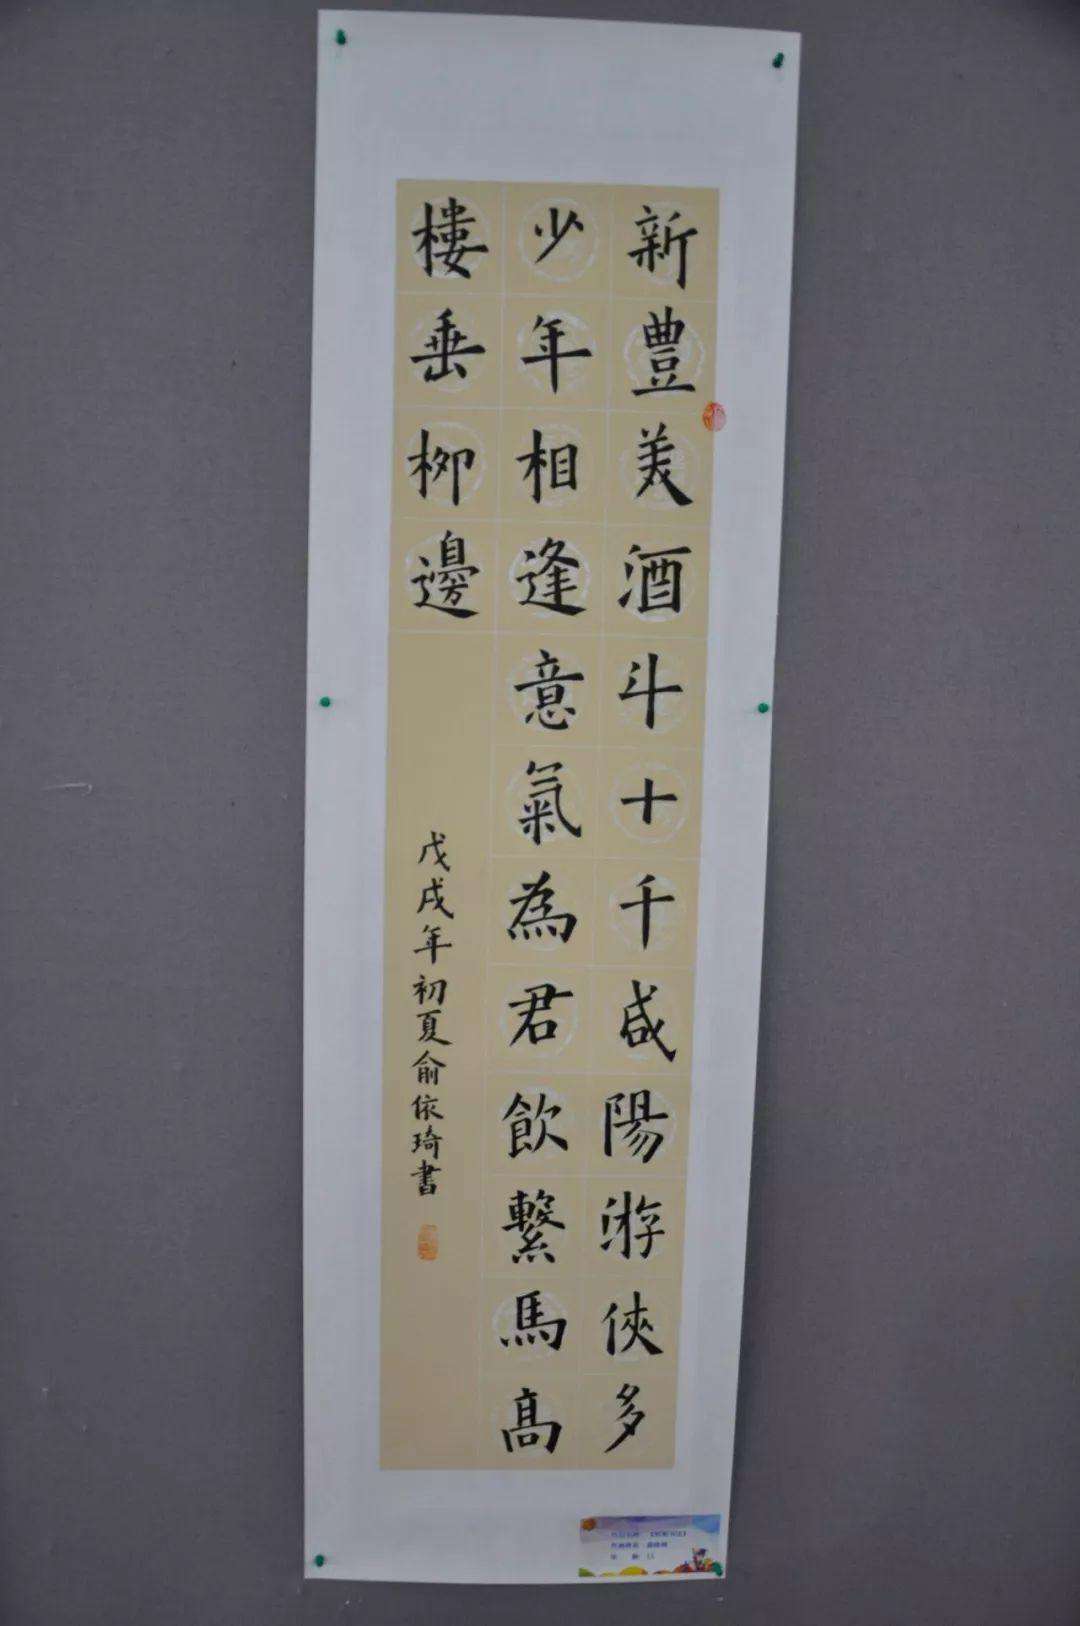 新豐美酒斗十千咸陽游俠多
少年相逢意氣為君飲繫馬高
樓垂柳邊
戊戌年初夏俞依琦書